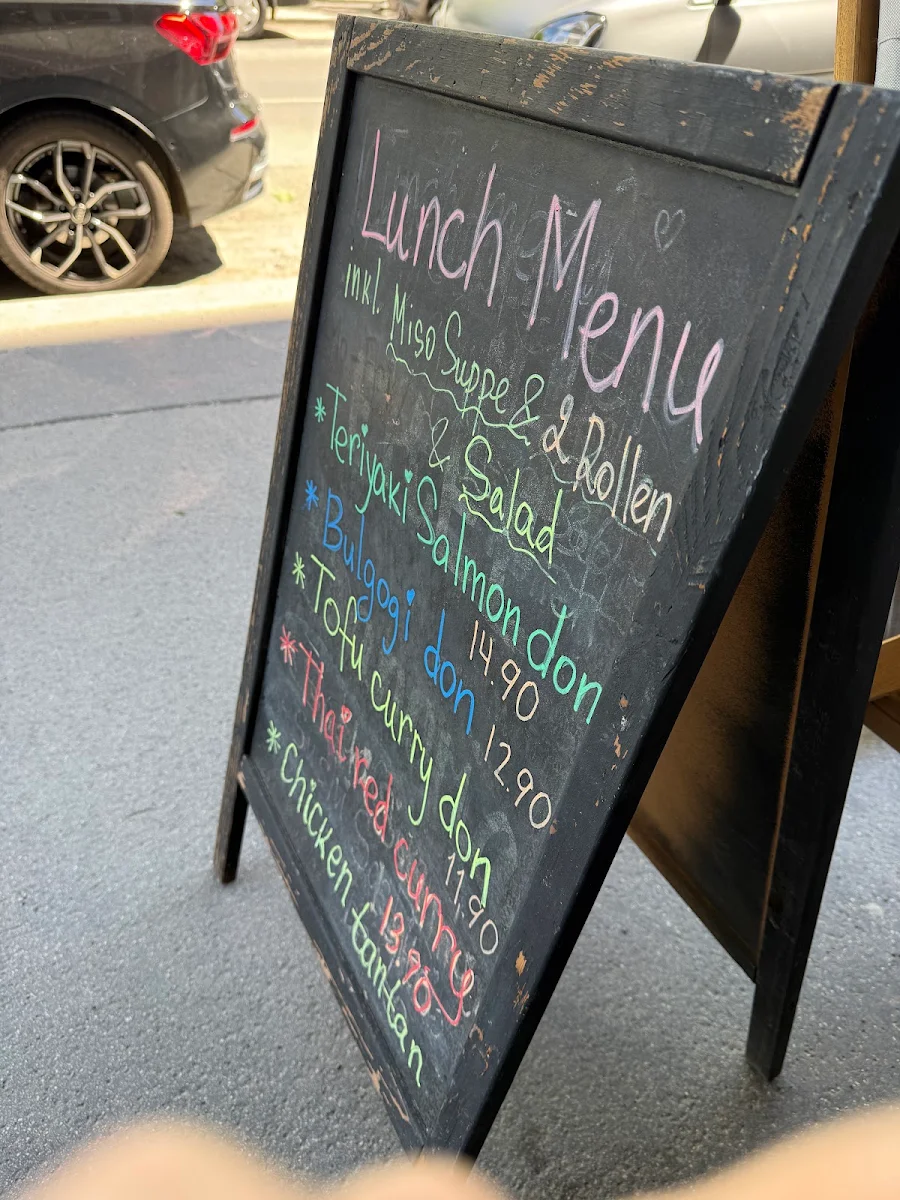 Lunch Menu
inkl. Miso Suppe & 2 Rollen
& Salad
* Teriyaki Salmon don
14.90
* Bulgogi don
12.90
* Tofu curry don
11.90
* Thai red curry
13.90
* Chicken tantan